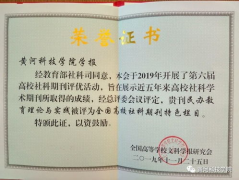 荣誉证书
黄河科技学院学报
经教育部社科司同意,本会于2019年开展了第六届
高校社科期刊评优活动,旨在展示近五年来高校社科学
术期刊所取得的成绩,经总评委会议评定,贵刊民办教
育理论与实践被评为全国高校社科期刊特色栏目。
特颁此证,以资鼓励。
全国高等学校文科学报研究会
二〇一九年十一月二十五日